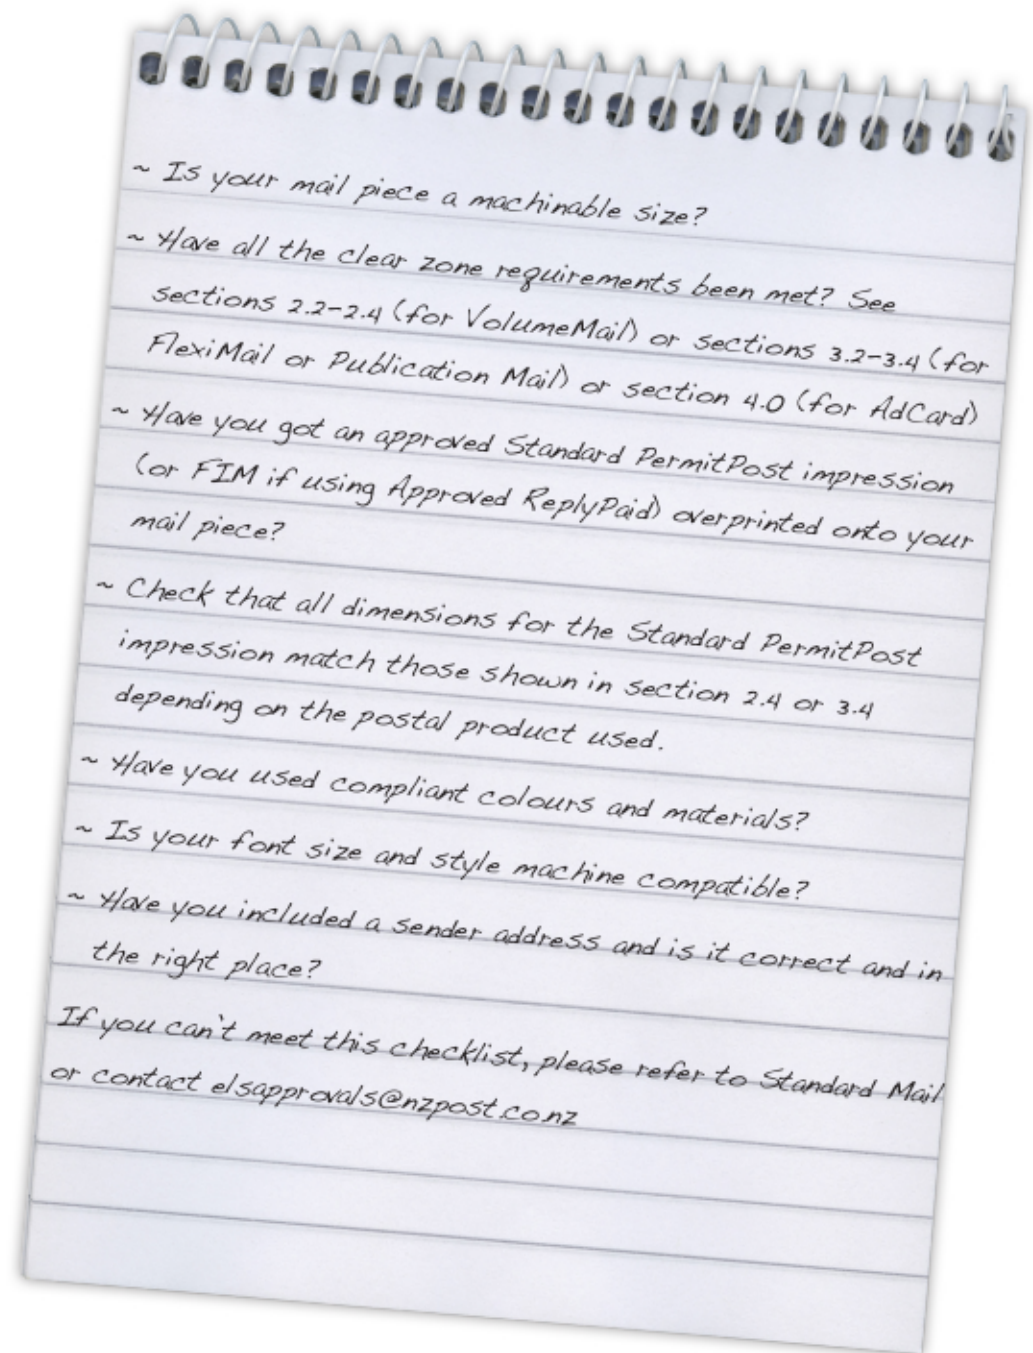 ~ Is your mail piece a machinable size?
~ Have all the clear zone requirements been met? See
sections 2.2-2.4 (for VolumeMail) or sections 3.2-3.4 (for
FlexiMail or Publication Mail) or section 4.0 (for AdCard)
~ Have you got an approved Standard PermitPost impression
(or FIM if using Approved ReplyPaid) overprinted onto your
mail piece?
~ Check that all dimensions for the Standard PermitPost
impression match those shown in section 2.4 or 3.4
depending on the postal product used.
~ Have you used compliant colours and materials?
~ Is your font size and style machine compatible?
~ Have you included a sender address and is it correct and in
the right place?
If you can't meet this checklist, please refer to Standard Mail
or contact elsapprovals@nzpost.co.nz